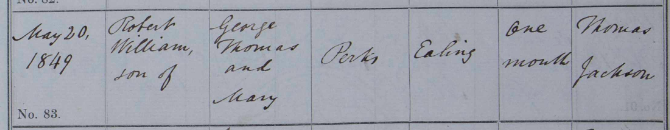 May 20,
1849
Robert
William,
son of
George
Thomas
and
Mary
Perks
Ealing
One
month
Thomas
Jackson
No. 83.